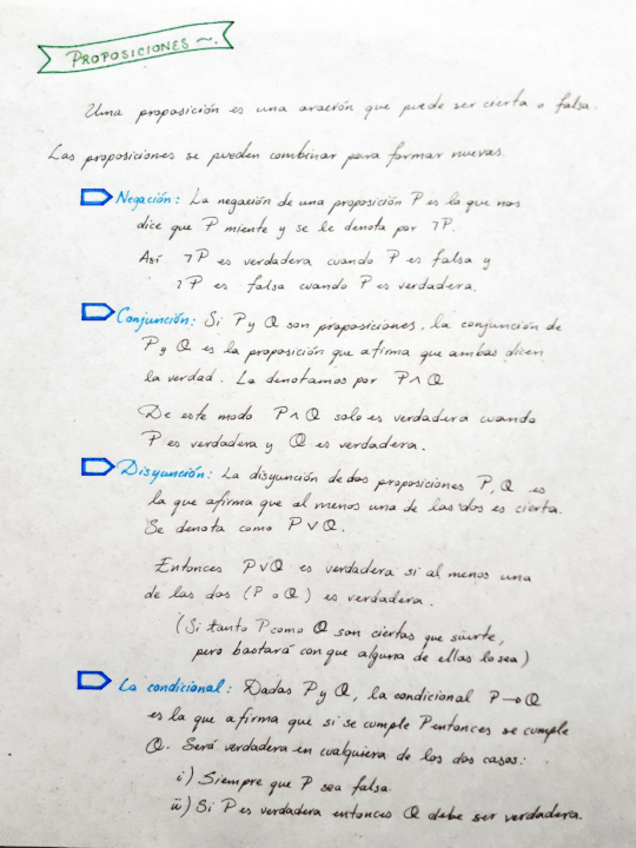 PROPOSICIONES ~.
Una proposición es una oración que puede ser cierta o falsa.
Las proposiciones se pueden combinar para formar nuevas.
Negación: La negación de una proposición P es la que nos
dice que P miente y se le denota por ¬P.
Así ¬P es verdadera cuando P es falsa y
¬P es falsa cuando P es verdadera.
Conjunción: Si P y Q son proposiciones, la conjunción de
P y Q es la proposición que afirma que ambas dicen
la verdad. La denotamos por P∧Q
De este modo P∧Q solo es verdadera cuando
P es verdadera y Q es verdadera.
Disyunción: La disyunción de dos proposiciones P, Q es
la que afirma que al menos una de las dos es cierta.
Se denota como P∨Q.
Entonces P∨Q es verdadera si al menos una
de las dos (P o Q) es verdadera.
(Si tanto P como Q son ciertas que suerte,
pero bastará con que alguna de ellas lo sea)
La condicional: Dadas P y Q, la condicional P→Q
es la que afirma que si se cumple P entonces se cumple
Q. Será verdadera en cualquiera de los dos casos:
i) Siempre que P sea falsa.
ii) Si P es verdadera entonces Q debe ser verdadera.